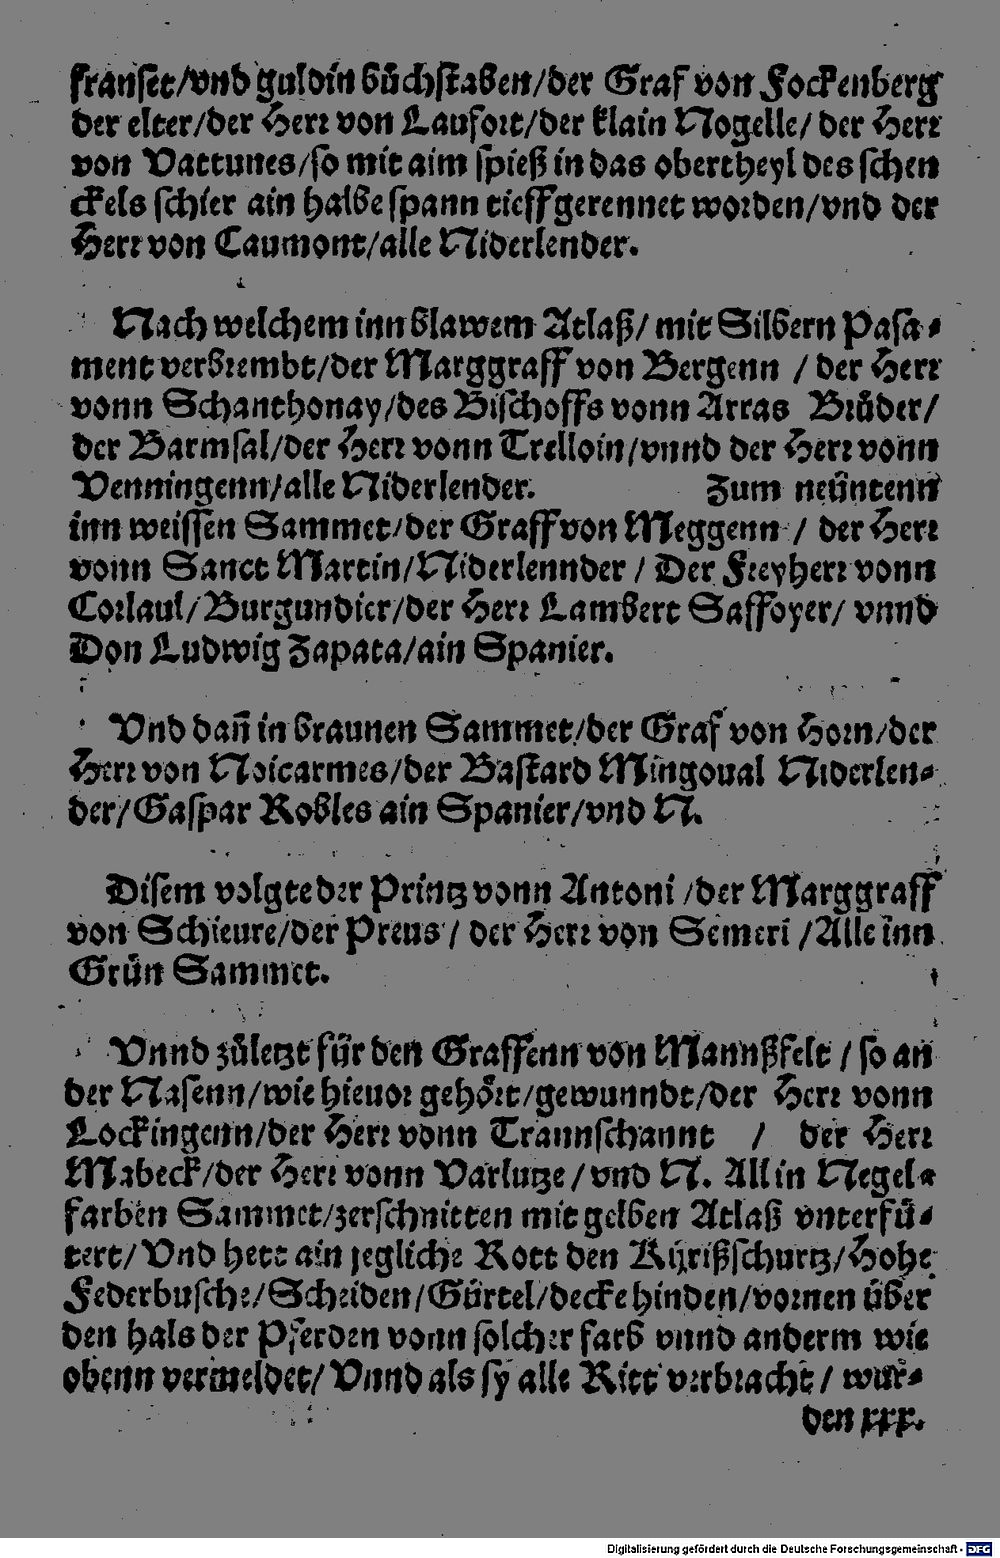 franset/vnd guldin bůchstaben/der Graf von Fockenberg
der elter/der Herr von Laufort/der klain Nogelle/ der Herr
von Vattunes/so mit aim spieß in das obertheyl des schen
ckels schier ain halbe spann tieff gerennet worden/vnd der
Herr von Caumont/alle Niderlender.
Nach welchem inn blawem Atlaß/ mit Silbern Pasa⸗
ment verbrembt/der Marggraff von Bergenn / der Herr
vonn Schanthonay/des Bischoffs vonn Arras Brůder/
der Barmsal/der Herr vonn Trelloin/vnnd der Herr vonn
Venningenn/alle Niderlender. Zum neüntenn
inn weissen Sammet/der Graff von Meggenn / der Herr
vonn Sanct Martin/Niderlennder / Der Freyherr vonn
Corlaul/Burgundier/der Herr Lambert Saffoyer/ vnnd
Don Ludwig Zapata/ain Spanier.
Vnd dañ in braunen Sammet/der Graf von Horn/der
Herr von Noicarmes/der Bastard Mingoual Niderlen⸗
der/Gaspar Robles ain Spanier/vnd N.
Disem volgte der Printz vonn Antoni /der Marggraff
von Schieure/der Preus / der Herr von Semeri /Alle inn
Grün Sammet.
Vnnd zůletzt für den Graffenn von Mannßfelt / so an
der Nasenn/wie hieuor gehört/gewunndt/der Herr vonn
Lockingenn/der Herr vonn Trannschannt / der Herr
Mabeck/der Herr vonn Varlutze/vnd N. All in Negel⸗
farben Sammet/zerschnitten mit gelben Atlaß vnterfü⸗
tert/ Vnd hett ain jegliche Rott den Kyrißschurtz/Hohe
Federbusche/Scheiden/Gürtel/decke hinden/vornen über
den hals der Pferden vonn solcher farb vnnd anderm wie
obenn vermeldet/ Vnnd als sy alle Ritt verbracht / wur⸗
den xxx.
Digitalisierung gefördert durch die Deutsche Forschungsgemeinschaft - DFG